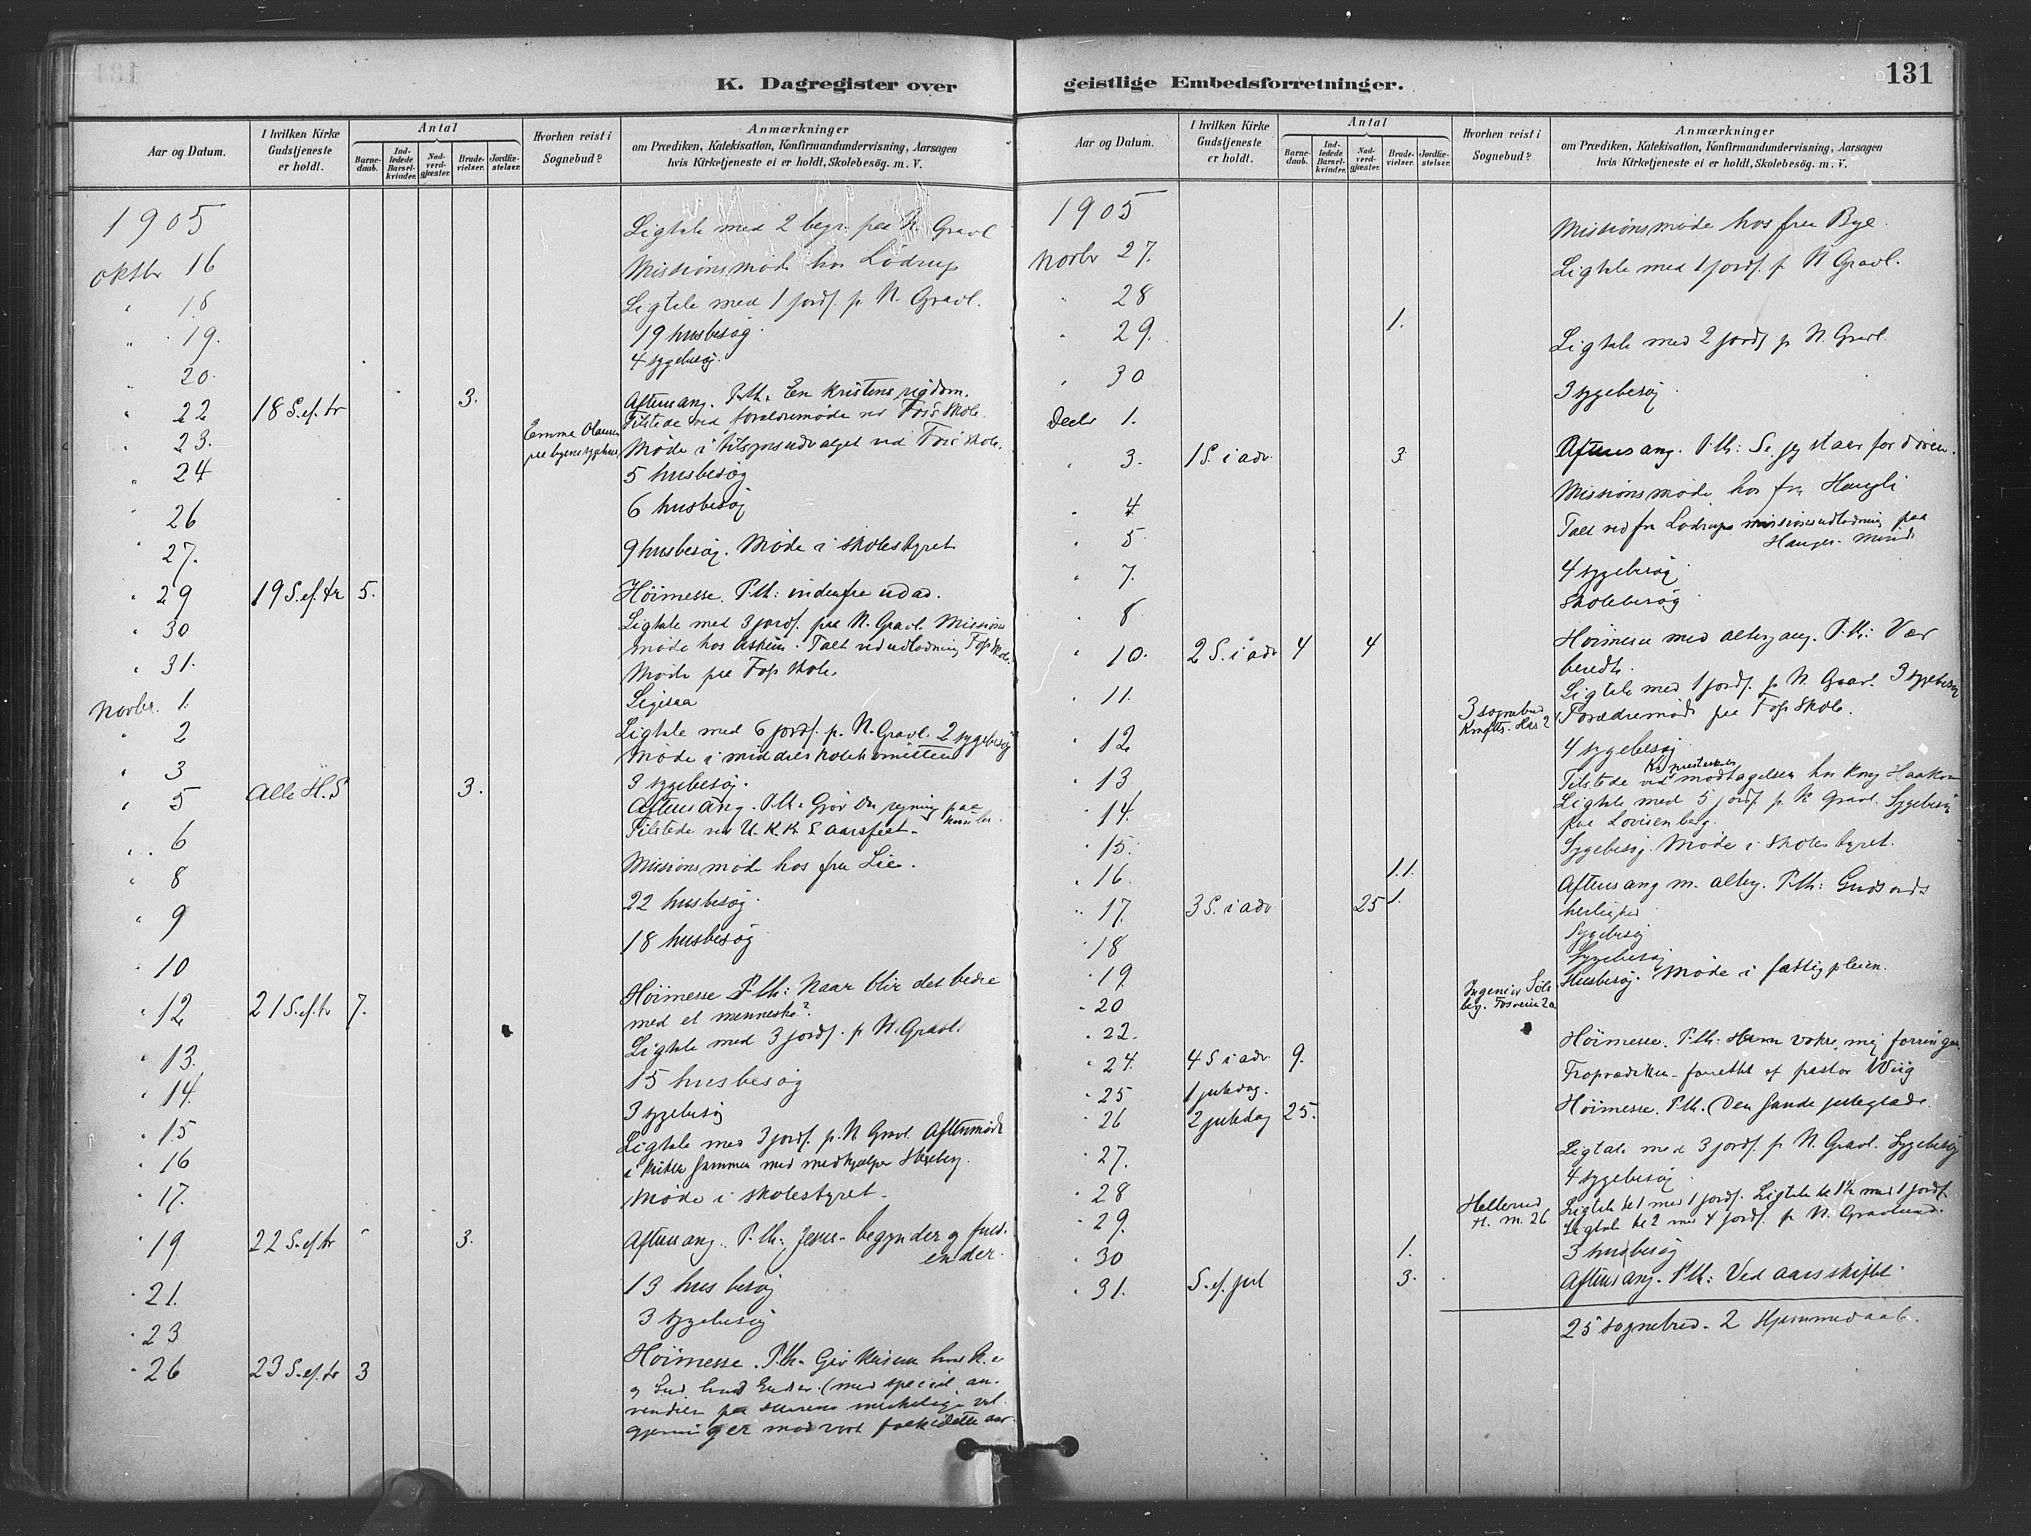 K. Dagregister over
Aar og Datum.
I hvilken Kirke Gudstjeneste er holdt.
Antal
Barne-daab.
Ind-ledede Barsel-kvinder.
Nad-verd-gjæster.
Brude-vielser.
Jordfæ-stelser.
Hvorhen reist i Sognebud?
Anmærkninger
om Prædiken, Katekisation, Konfirmandundervisning, Aarsagen
hvis Kirketjeneste ei er holdt, Skolebesög. m. V.
1905
Ligtale med 2 begr. paa N. Gravl
oktbr 16 Missionsmøde hos Lødrup
" 18 Ligtale med 1 jordf. p. N. Gravl.
" 19. 19 husbesøg.
" 20. 4 sygebesøg.
" 22 18 S. ef. tr 3. Aftensang. P. th. En kristens rigdom.
Tilstede ved foraldremøde ved Fos Skole.
" 23. Emma Olausen Møde i tilsynsudvalget ved Fos skole.
" 24 5 husbesøg
" 26 6 husbesøg
" 27. 9 husbesøg. Møde i skolestyret
" 29 19 S. ef. tr 5. Høimesse. P. th: indenfra udad.
" 30 Ligtale med 3 jordf. paa N. Gravl. Missions
møde hos Askim. Talt ved udlodning Fos skole.
" 31. Møde paa Fos Skole.
Novbr. 1.
" 2 Ligtale med 6 jordf. p. N. Gravl. 2 sygebesøg
Møde i middelskolekomiteen
" 3 3 sygebesøg.
" 5 Alle H. S 3. Aftensang. P. th. Gjør du regning paa
" 6 Tilstede ved U. K. K S aarsfest.
" 8 Missionsmøde hos fru Lie.
" 9 22 husbesøg.
" 10 18 husbesøg
" 12 21 S. ef. tr 7. Høimesse P. th: Naar blir det bedre
med et menneske?
" 13. Ligtale med 3 jordf. p. N. Gravl.
" 14. 15 husbesøg
" 15 3 sygebesøg
" 16 Ligtale med 3 jordf. p. N Gravl. Aftenmøde
i kirken sammen med medhjælper
" 17. Møde i skolestyret.
" 19 22 S. ef tr 3. Aftensang. P. th: Jesus begynder og fuld-
ender.
" 21. 13 husbesøg
" 23 3 sygebesøg
" 26 23 S. ef. tr 3 Høimesse. P. th. Giv keiseren hvad k. er
og Gud hvad Guds er. (med speciel an-
vendelse paa Herrens
gjerninger mod vort folk i dette aar.
geistlige Embedsforretninger.
131
Aar og Datum.
I hvilken Kirke Gudstjeneste er holdt.
Antal
Barne-daab.
Ind-ledede Barsel-kvinder.
Nad-verd-gjæster.
Brude-vielser.
Jordfæ-stelser.
Hvorhen reist i Sognebud?
Anmærkninger
om Prædiken, Katekisation, Konfirmandundervisning, Aarsagen
hvis Kirketjeneste ei er holdt, Skolebesög. m. V.
1905
Missionsmøde hos fru Bye.
Novbr 27. Ligtale med 1 jordf. p. N Gravl.
" 28 1.
" 29. Ligtale med 2 jordf p N. Gravl.
" 30 3 sygebesøg
Decbr 1.
" 3. 1 S. i adv 3 Aftensang. P. th: Se, jeg staar for døren.
" 4 Missionsmøde hos fru Haugli
" 5 Talt ved fru Lødrups missionsudlodning paa
Hauges Minde
" 7. 4 sygebesøg
" 8 Skolebesøg
" 10. 2 S. i adv 4 4 Høimesse med altergang. P. th: Vær
beredt.
" 11. Ligtale med 1 jordf. p. N. Gravl. 3 sygebesøg
3 sognebud Forældremøde paa Fos Skole.
" 12 4 sygebesøg
" 13 Tilstede ved modtagelsen hos kong Haakon
" 14. Ligtale med 5 jordf. p. N Gravl. Sygebesøg
paa Lovisenberg.
" 15. Sygebesøg. Møde i skolestyret.
" 16. 1.1.
" 17. 3 S. i adv 25 1. Aftensang m. alterg. P. th: Guds ords
herlighed
" 18 Sygebesøg
" 19 Sygebesøg
" 20 Husbesøg. Møde i fattigpleien.
" 22. Ingeniør
" 24. 4 S i adv 9. Høimesse. P. th: Han vokse, mig forringes.
" 25 1 juledag. Froprædiken forrettet af pastor Wiig
" 26 2 juledag 25. Høimesse. P. th. Den sande juleglæde.
" 27. Ligtale med 3 jordf p N. Gravl. Sygebesøg
" 28 4 sygebesøg
" 29. Hellerud Ligtale kl 1 med 1 jordf. Ligtale kl 1½ med 1 jordf.
H. m. 26 Ligtale kl 2 med 4 jordf. p N. Gravlund.
" 30 1. 3 husbesøg
" 31. S. ef. jul 3. Aftensang. P. th: Ved aarsskiftet
25 sognebud. 2 Hjemmedaab.